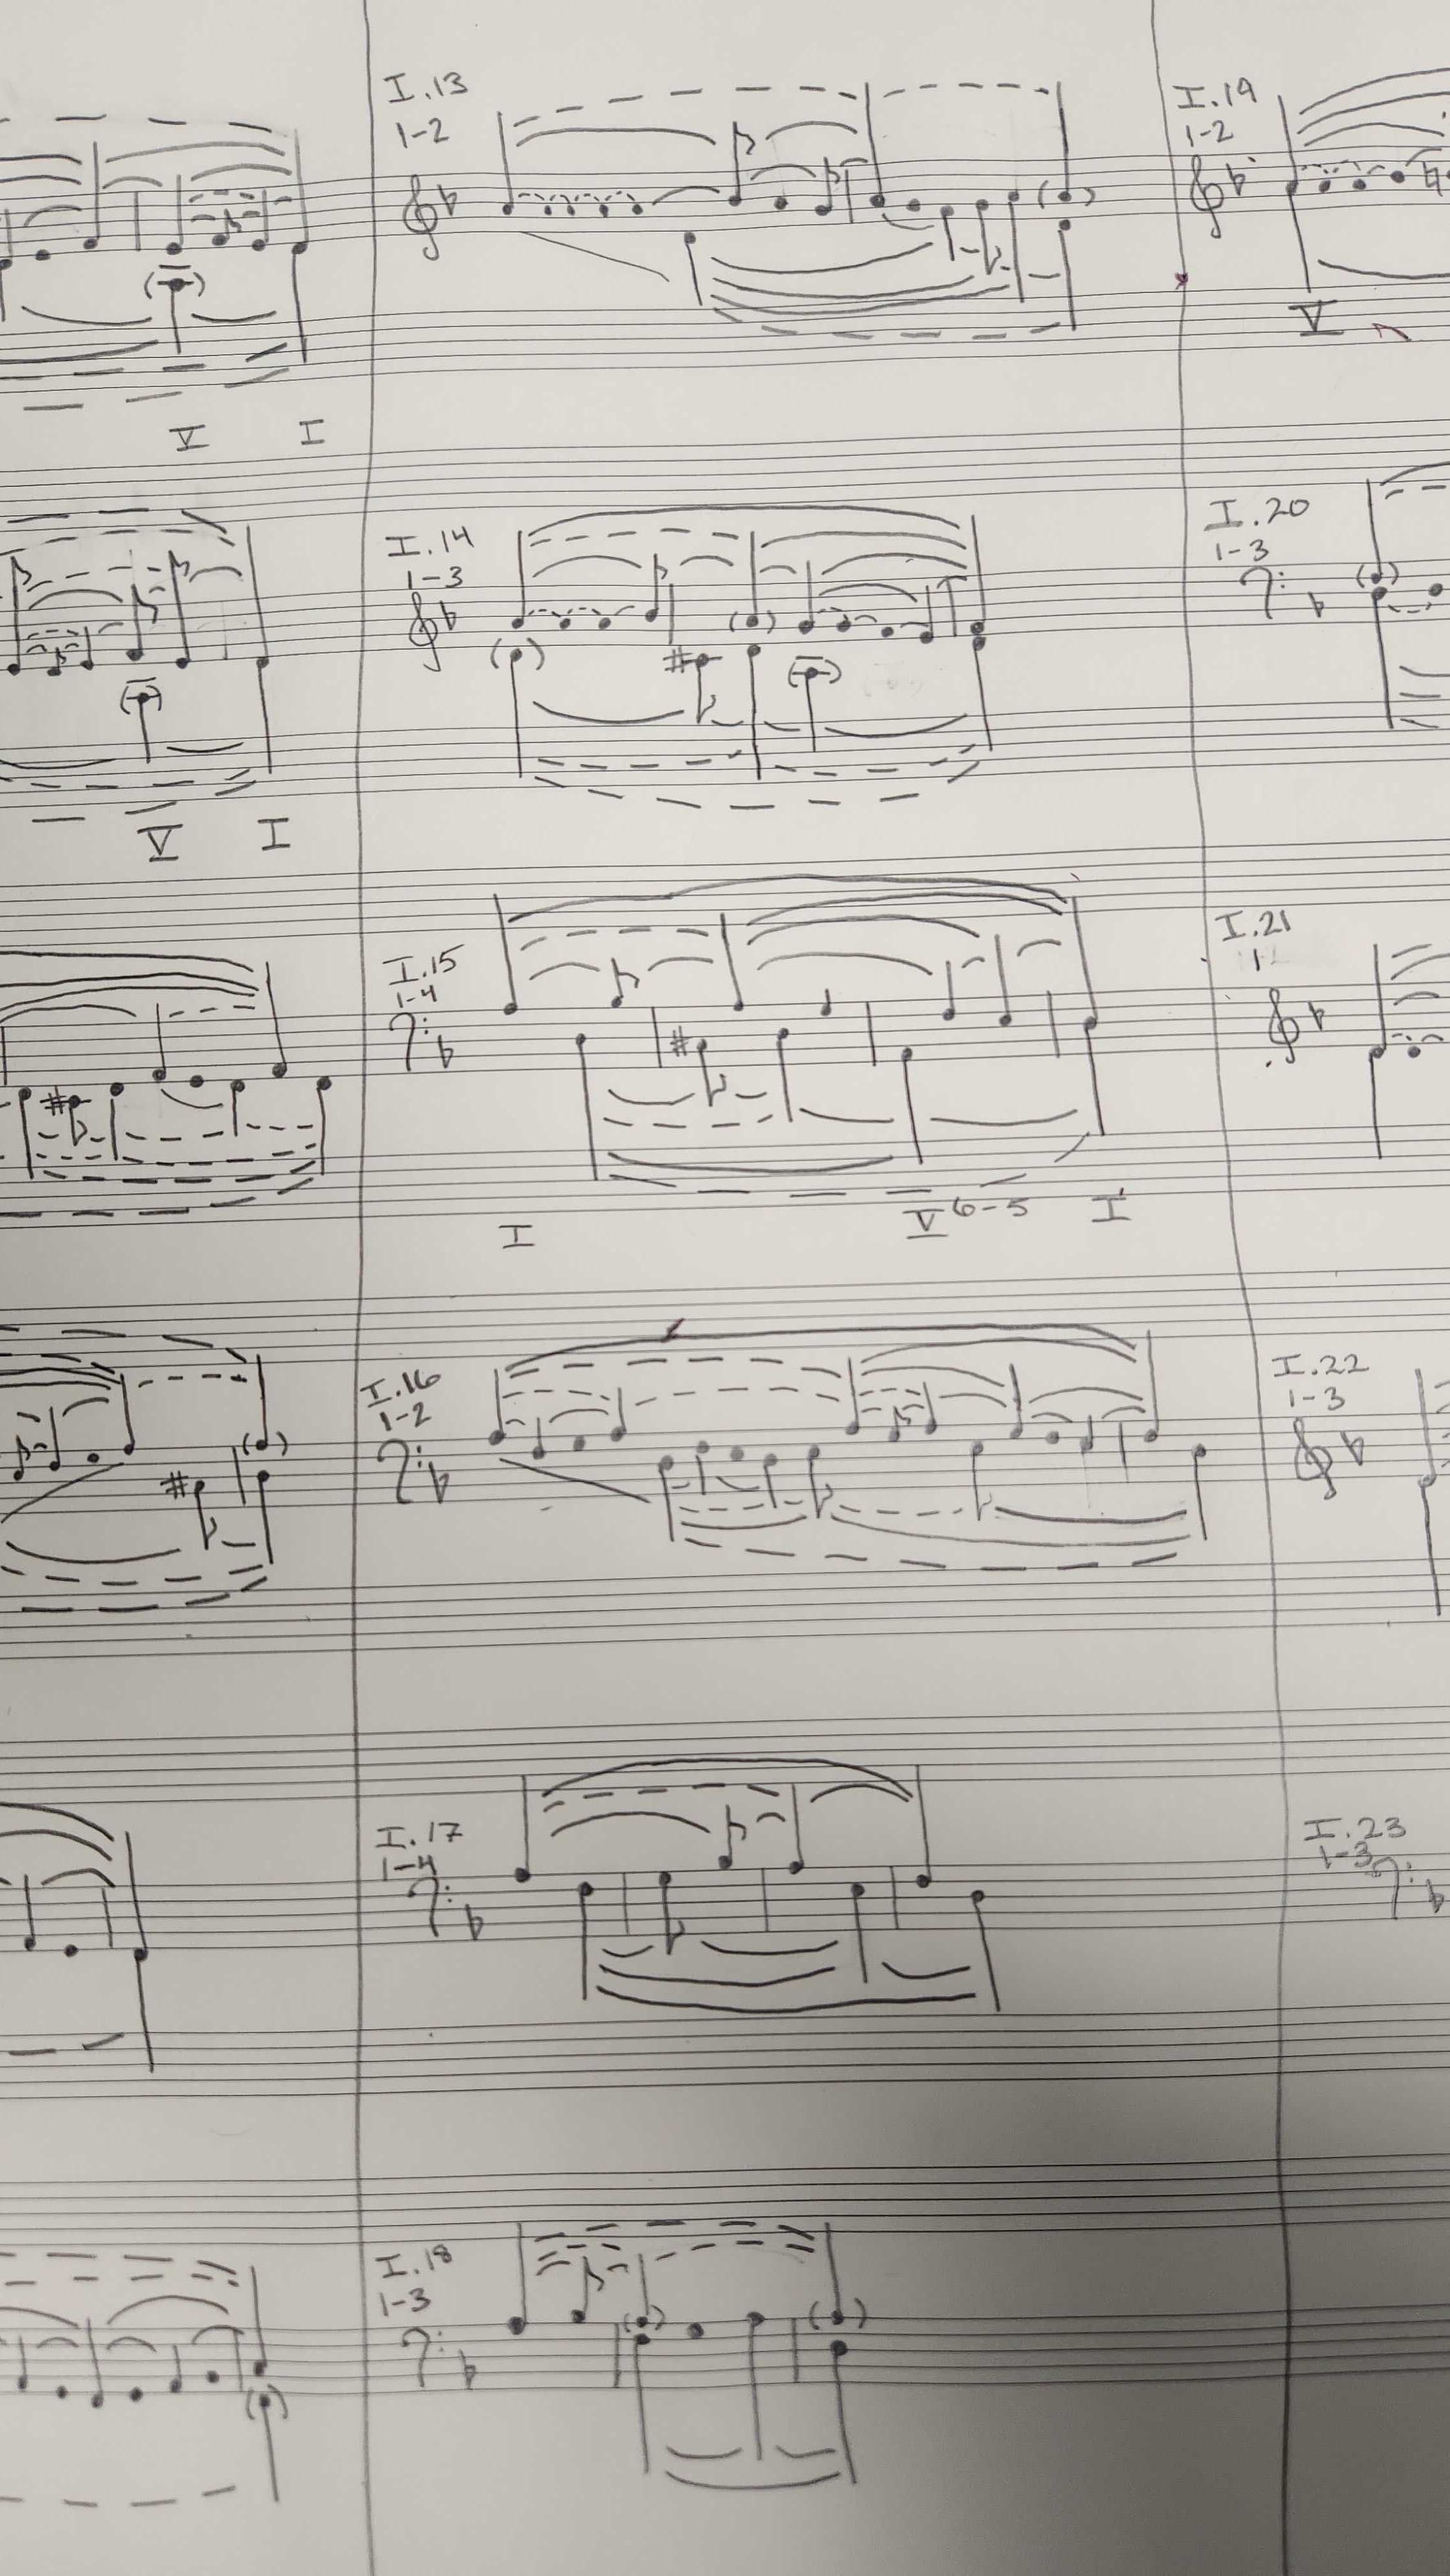 V I
V I
I.13
1-2
I.14
1-3
I.15
1-4
I V 6-5 I
I.16
1-2
I.17
1-4
I.18
1-3
I.19
1-2
V
I.20
1-3
I.21
1
I.22
1-3
I.23
1-3